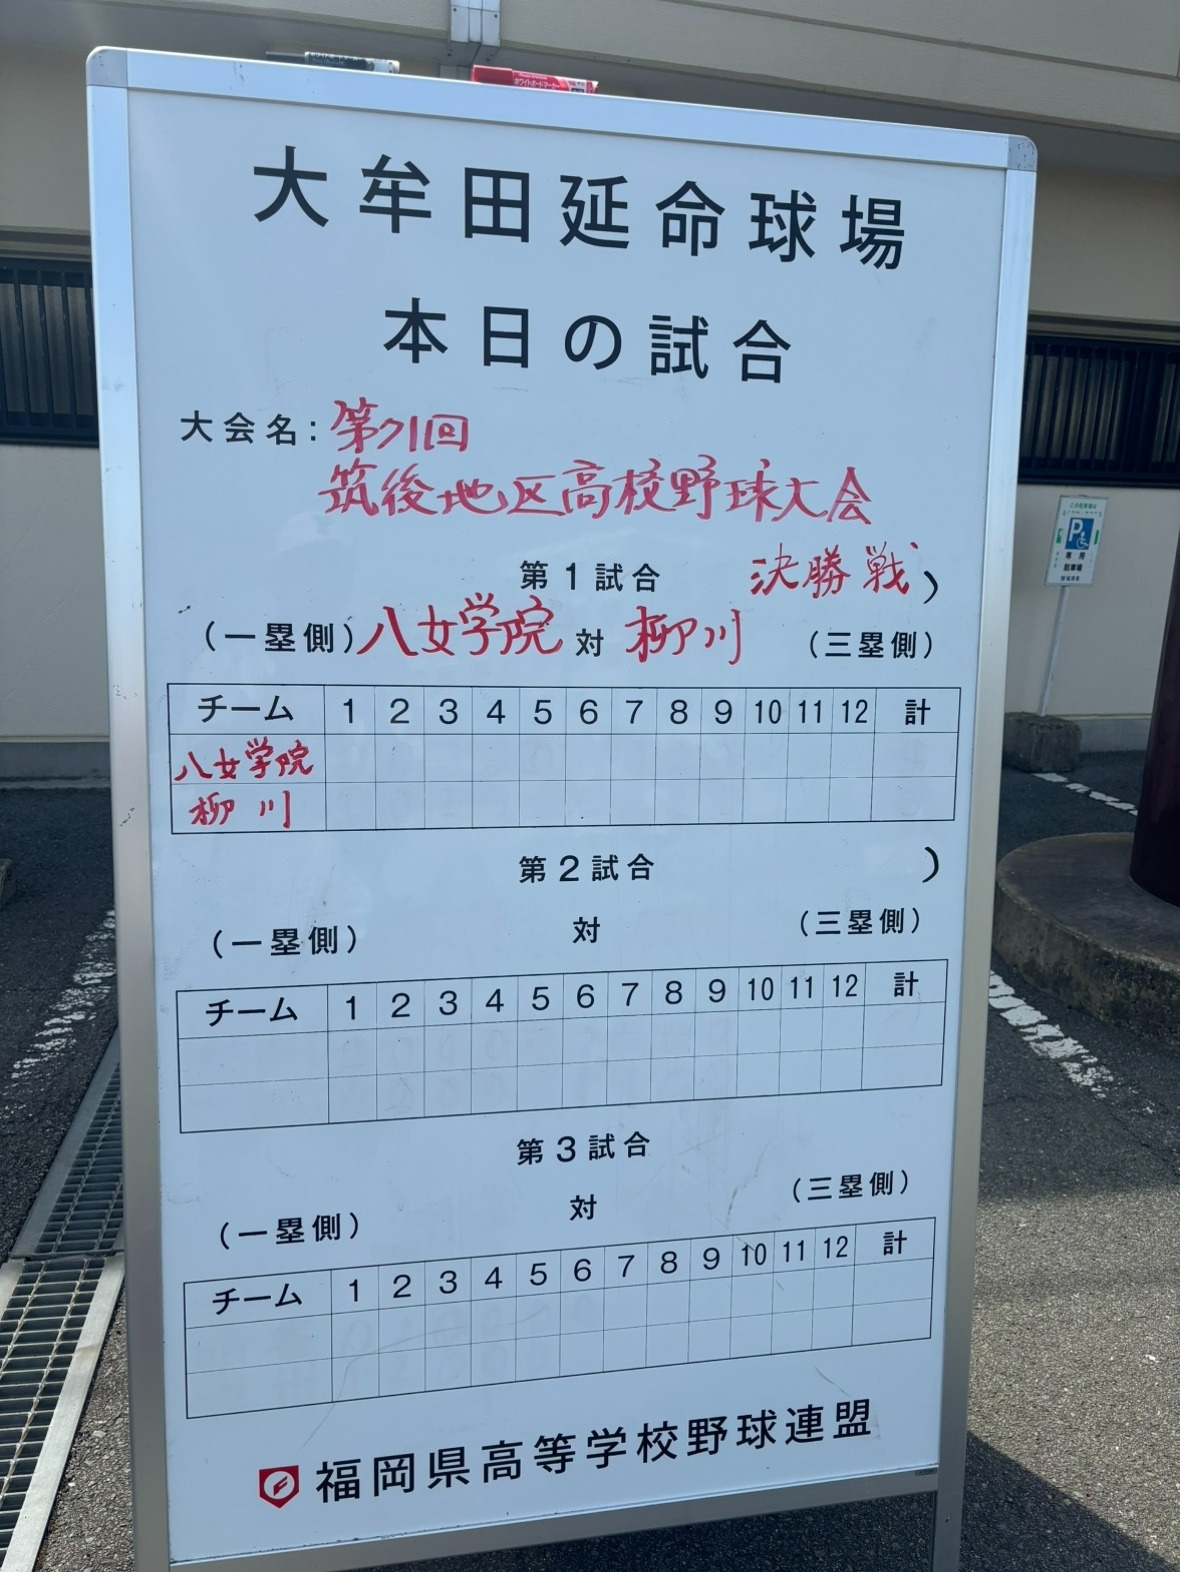 ホワイトボードマーカー
大牟田延命球場
本日の試合
大会名：第71回
筑後地区高校野球大会
第1試合 決勝戦）
（一塁側）八女学院 対 柳川 （三塁側）
チーム 1 2 3 4 5 6 7 8 9 10 11 12 計
八女学院
柳川
第2試合 ）
（一塁側） 対 （三塁側）
チーム 1 2 3 4 5 6 7 8 9 10 11 12 計
第3試合
（一塁側） 対 （三塁側）
チーム 1 2 3 4 5 6 7 8 9 10 11 12 計
F 福岡県高等学校野球連盟
P
専用
駐車場